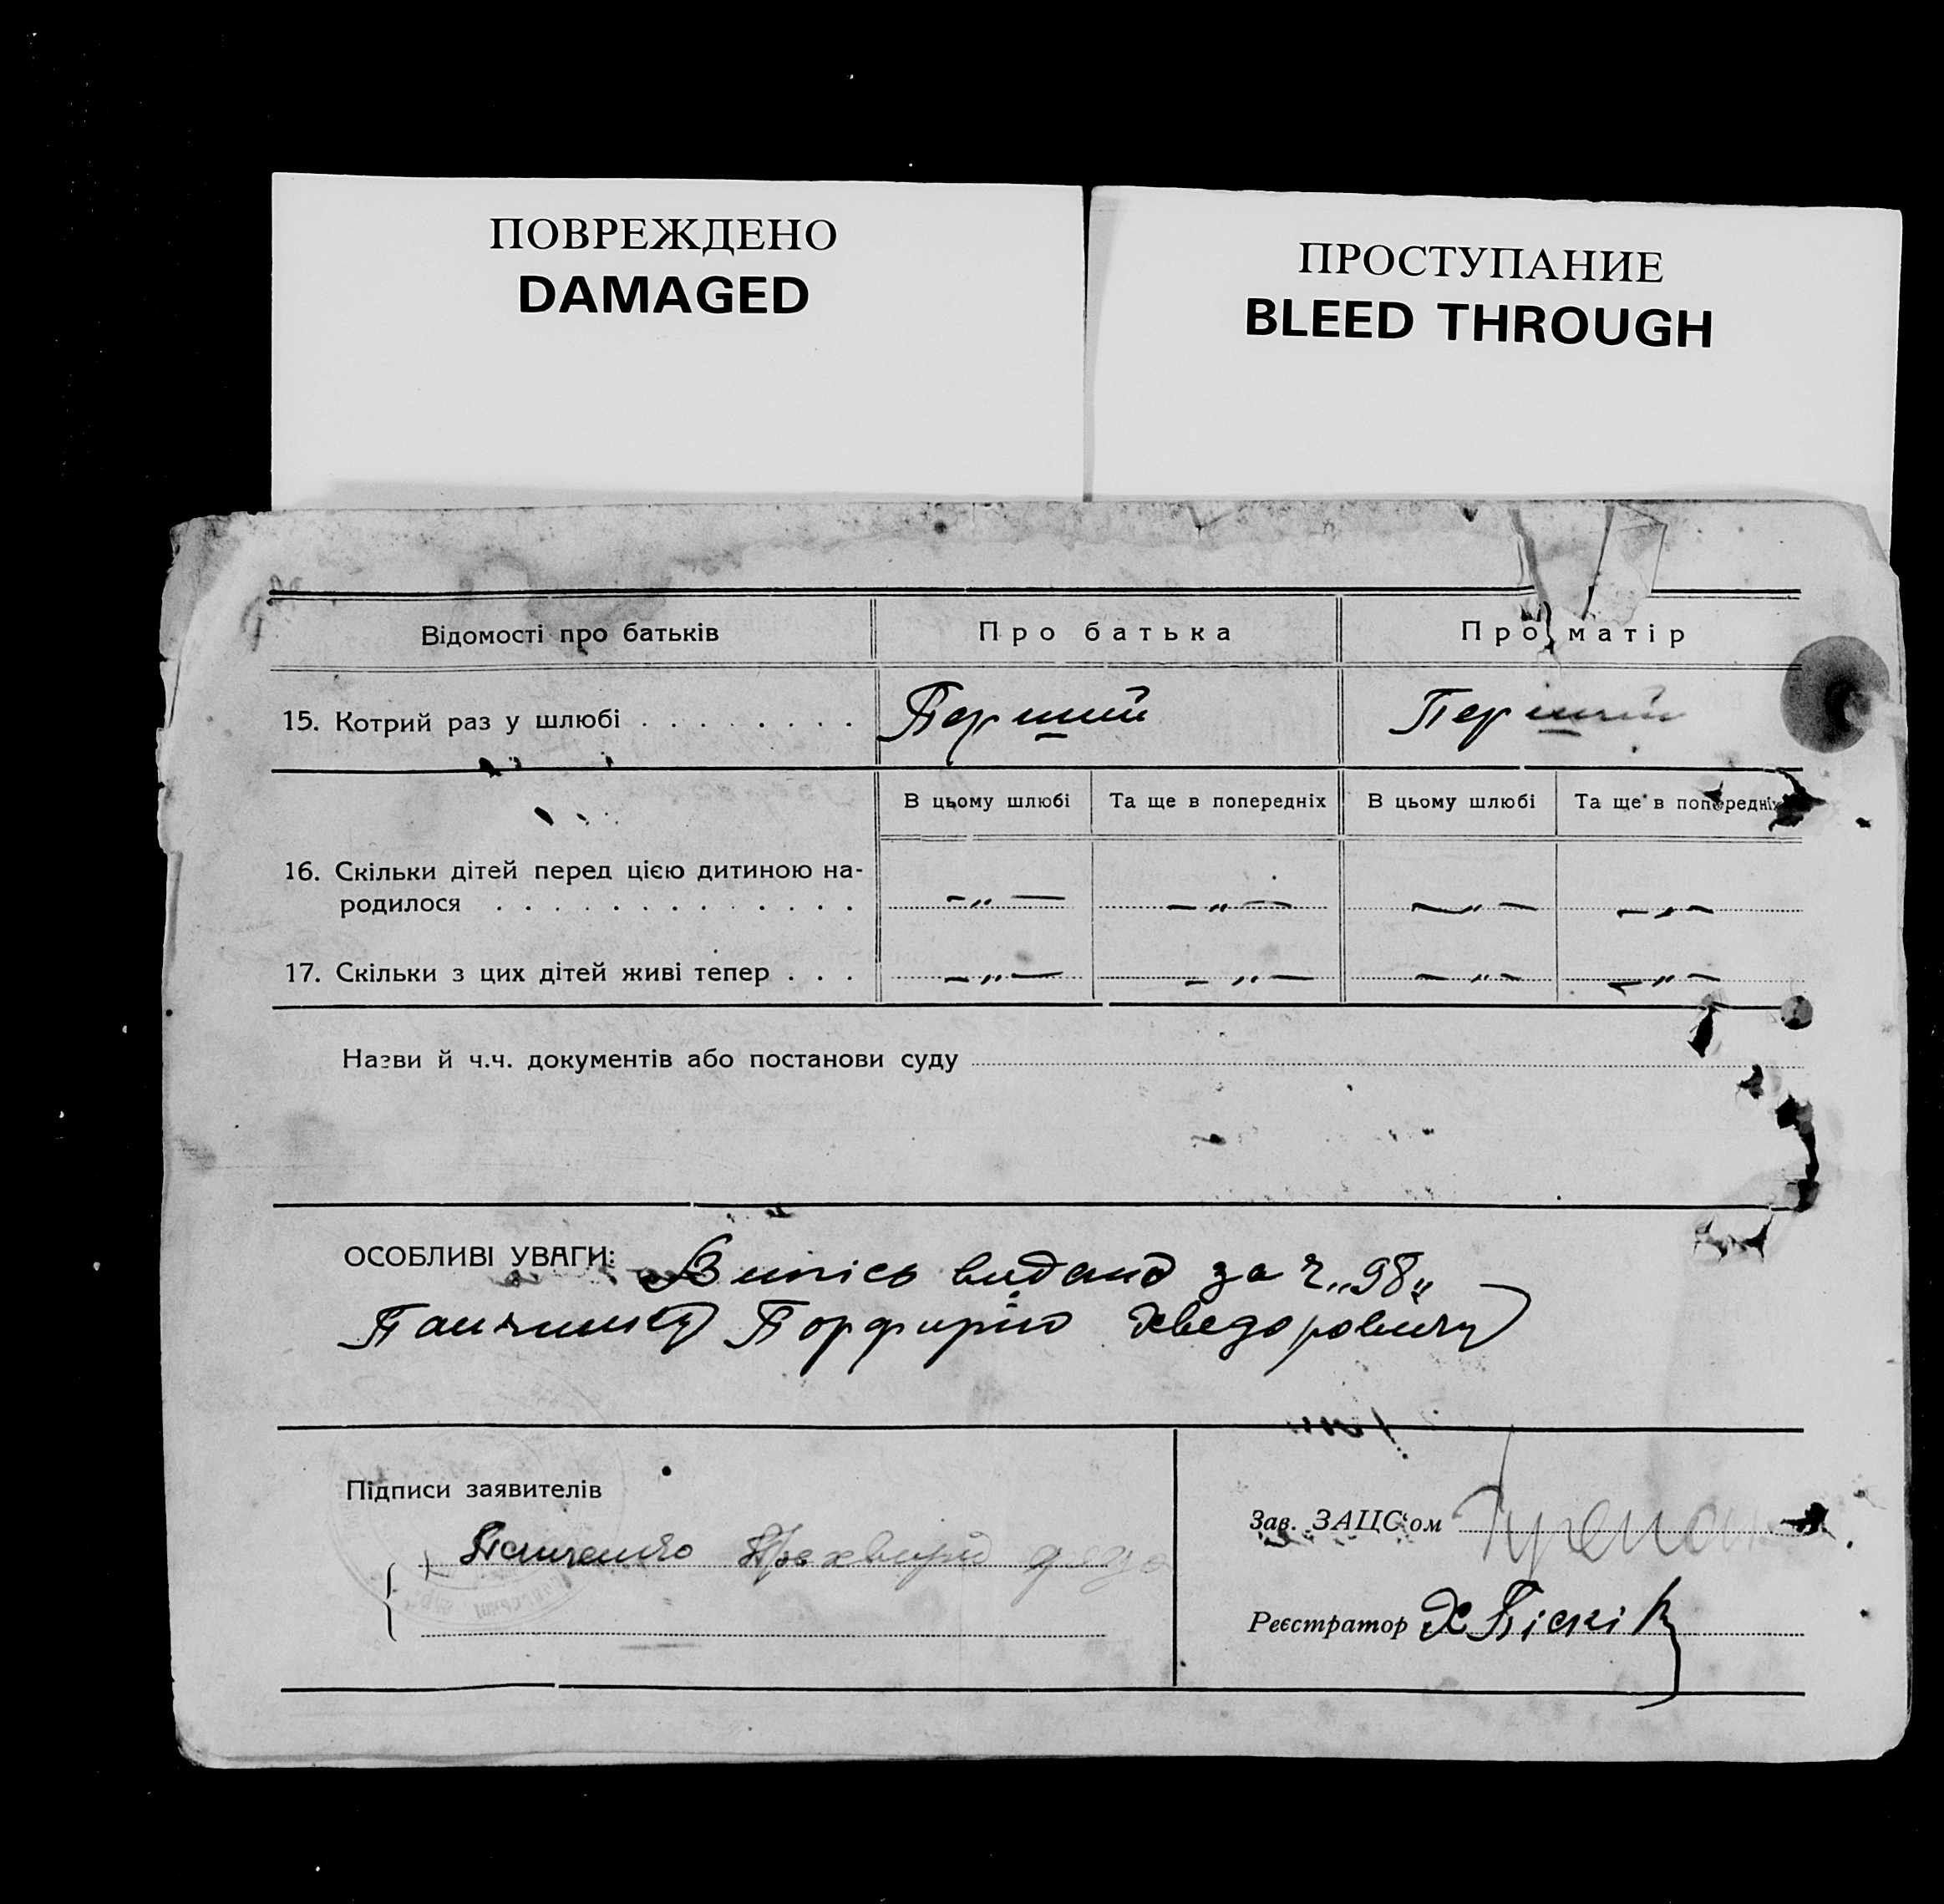 ПОВРЕЖДЕНО
DAMAGED
ПРОСТУПАНИЕ
BLEED THROUGH
Відомості про батьків Про батька Про матір
15. Котрий раз у шлюбі . . . . . . . . Перший Перший
В цьому шлюбі Та ще в попередніх В цьому шлюбі Та ще в попередніх
16. Скільки дітей перед цією дитиною на-
родилося . . . . . . . . . . . . . — „ — — „ — — „ — — „ —
17. Скільки з цих дітей живі тепер . . . — „ — — „ — — „ — — „ —
Назви й ч.ч. документів або постанови суду
ОСОБЛИВІ УВАГИ: Випісь видано за ч „98„
Порфирію Хведоровичу
Підписи заявителів
Панченко
Зав. ЗАЦС'ом
Реєстратор